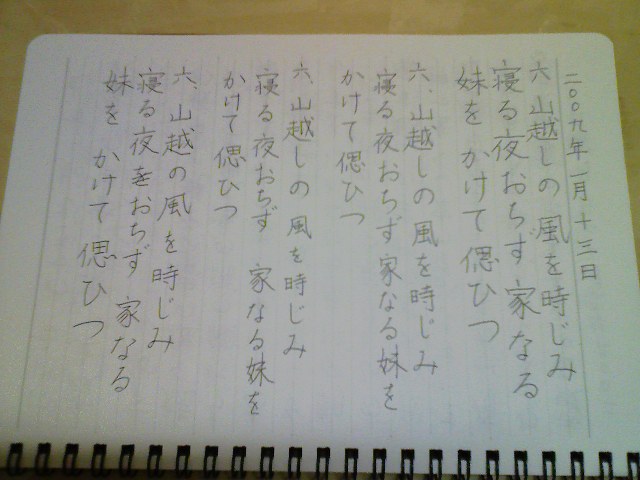 二〇〇九年一月十三日
六、山越しの風を時じみ
寝る夜おちず家なる
妹をかけて偲ひつ
六、山越しの風を時じみ
寝る夜おちず家なる妹を
かけて偲ひつ
六、山越しの風を時じみ
寝る夜おちず家なる妹を
かけて偲ひつ
六、山越の風を時じみ
寝る夜をおちず家なる
妹をかけて偲ひつ